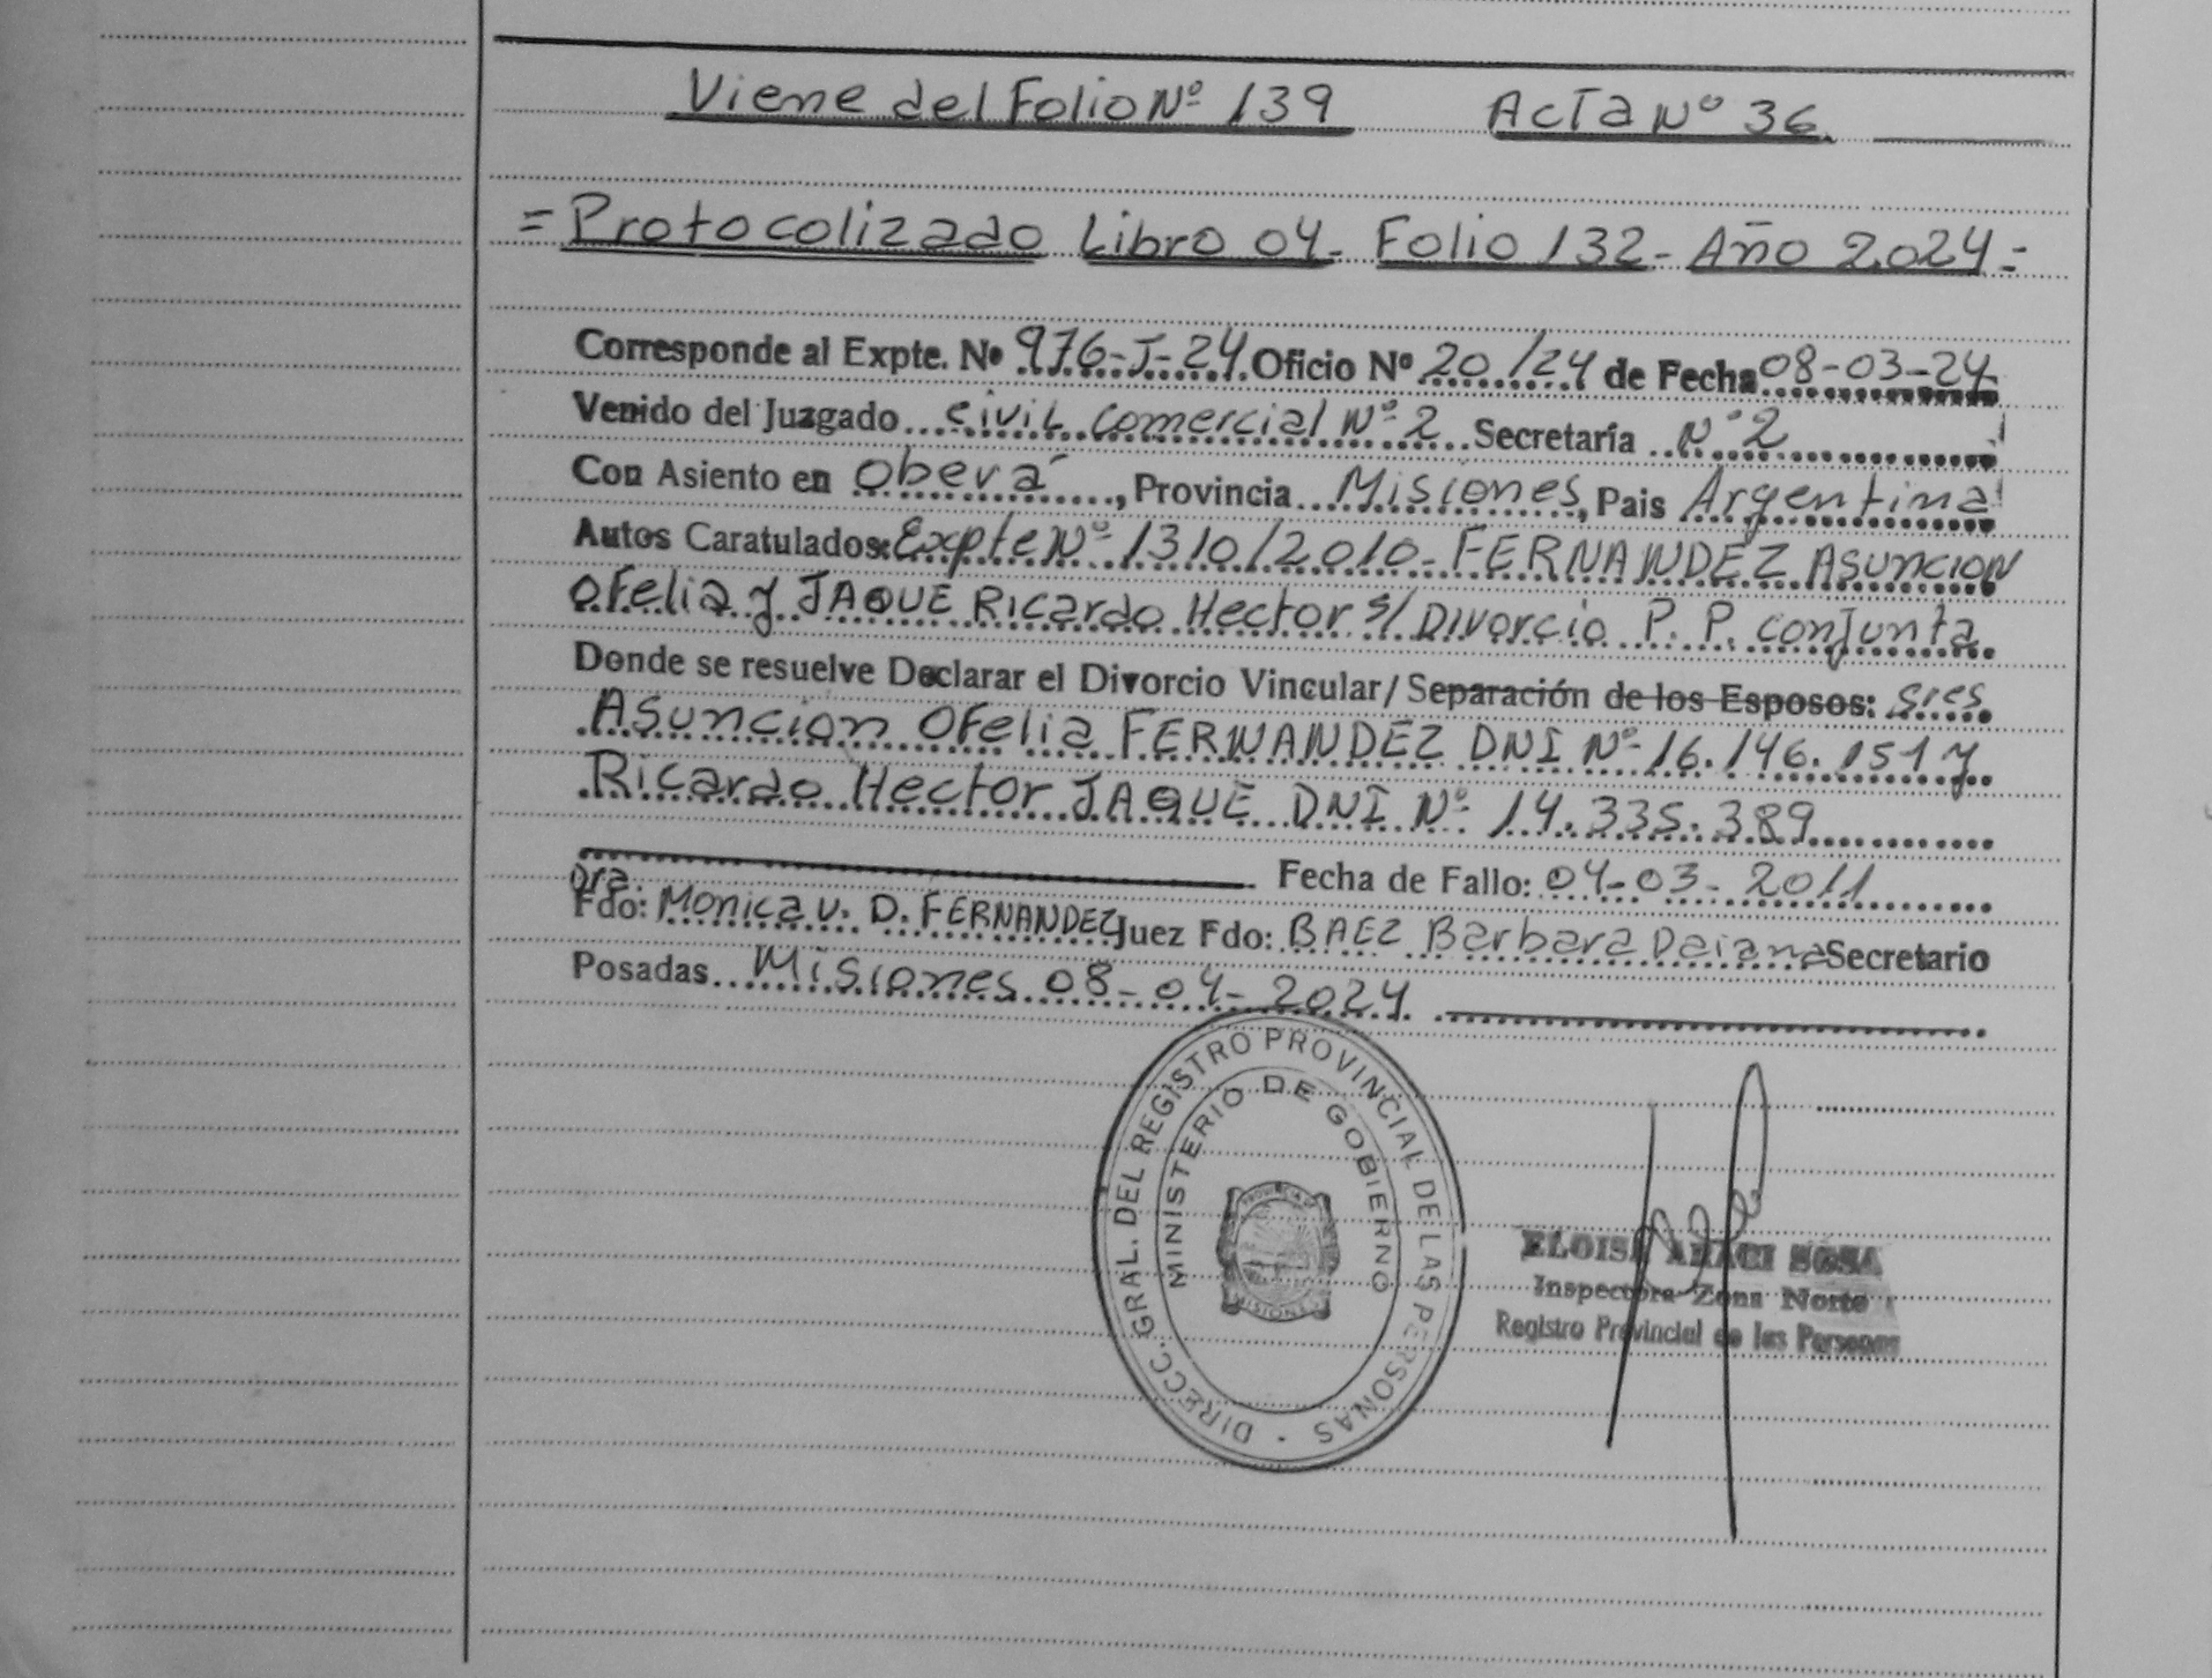 Viene del Folio Nº 139 Acta Nº 36.
= Protocolizado Libro 04- Folio 132- Año 2.024=
Corresponde al Expte. Nº 976-J-24. Oficio Nº 20/24 de Fecha 08-03-24
Venido del Juzgado Civil Comercial Nº 2 Secretaría Nº 2
Con Asiento en Oberá, Provincia Misiones, Pais Argentina
Autos Caratulados: Expte Nº 1310/2010- FERNANDEZ ASUNCION
Ofelia y JAQUE Ricardo Hector s/ Divorcio P. P. conjunta
Donde se resuelve Declarar el Divorcio Vincular/Separación de los Esposos: Sres
Asuncion Ofelia FERNANDEZ DNI Nº 16.146.151 y
Ricardo Hector JAQUE DNI Nº 14.335.389
Fecha de Fallo: 04-03-2011
Dra.
Fdo: Monica V. D. FERNANDEZ Juez Fdo: BAEZ Barbara Daiana Secretario
Posadas Misiones 08-04-2024.
DIRECC. GRAL. DEL REGISTRO PROVINCIAL DE LAS PERSONAS
MINISTERIO DE GOBIERNO
PROVINCIA DE
MISIONES
ELOISA ARACI SOSA
Inspectora Zona Norte
Registro Provincial de las Personas